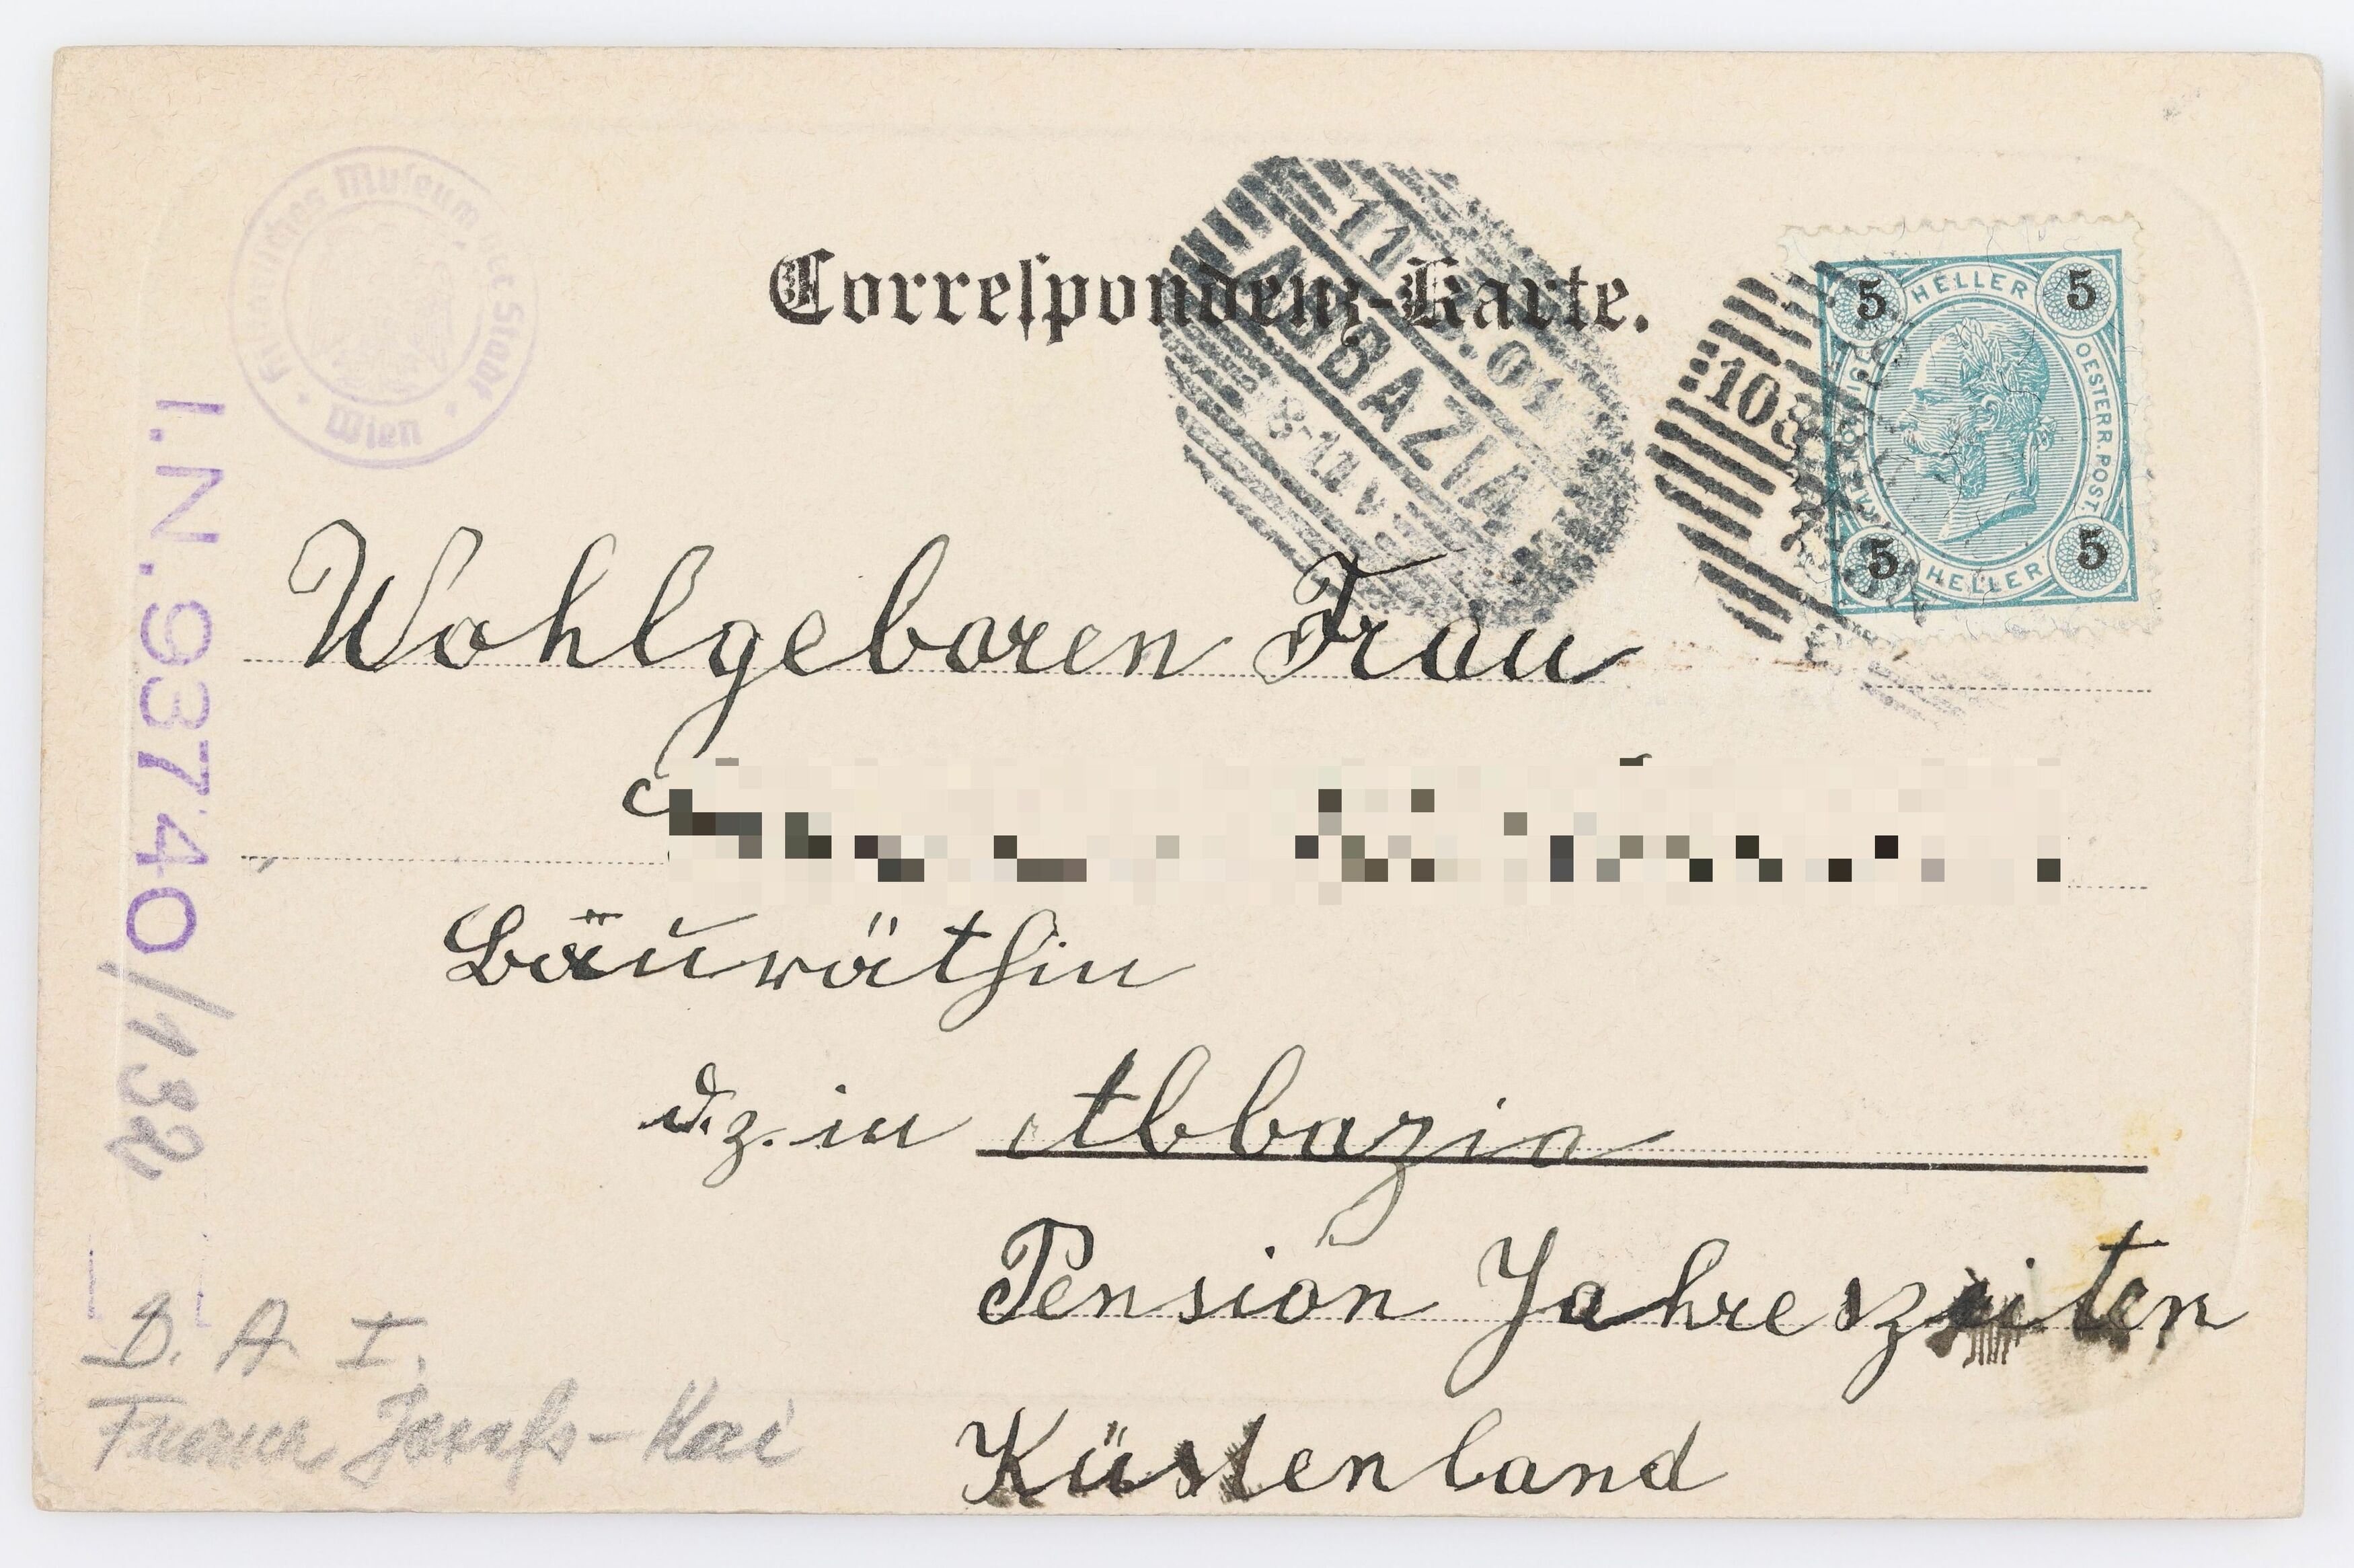 Historisches Museum der Stadt Wien
Correſpondenz-Karte.
ABBAZIA
8-11 V
108
HELLER
5 5
OESTERR. POST.
5 5
HELLER
I.N. 93740/132
Wohlgeboren Frau
Bauräthin
d. z. in Abbazia
Pension Jahreszeiten
Küstenland
D. A I.
Franz Josefs-Kai